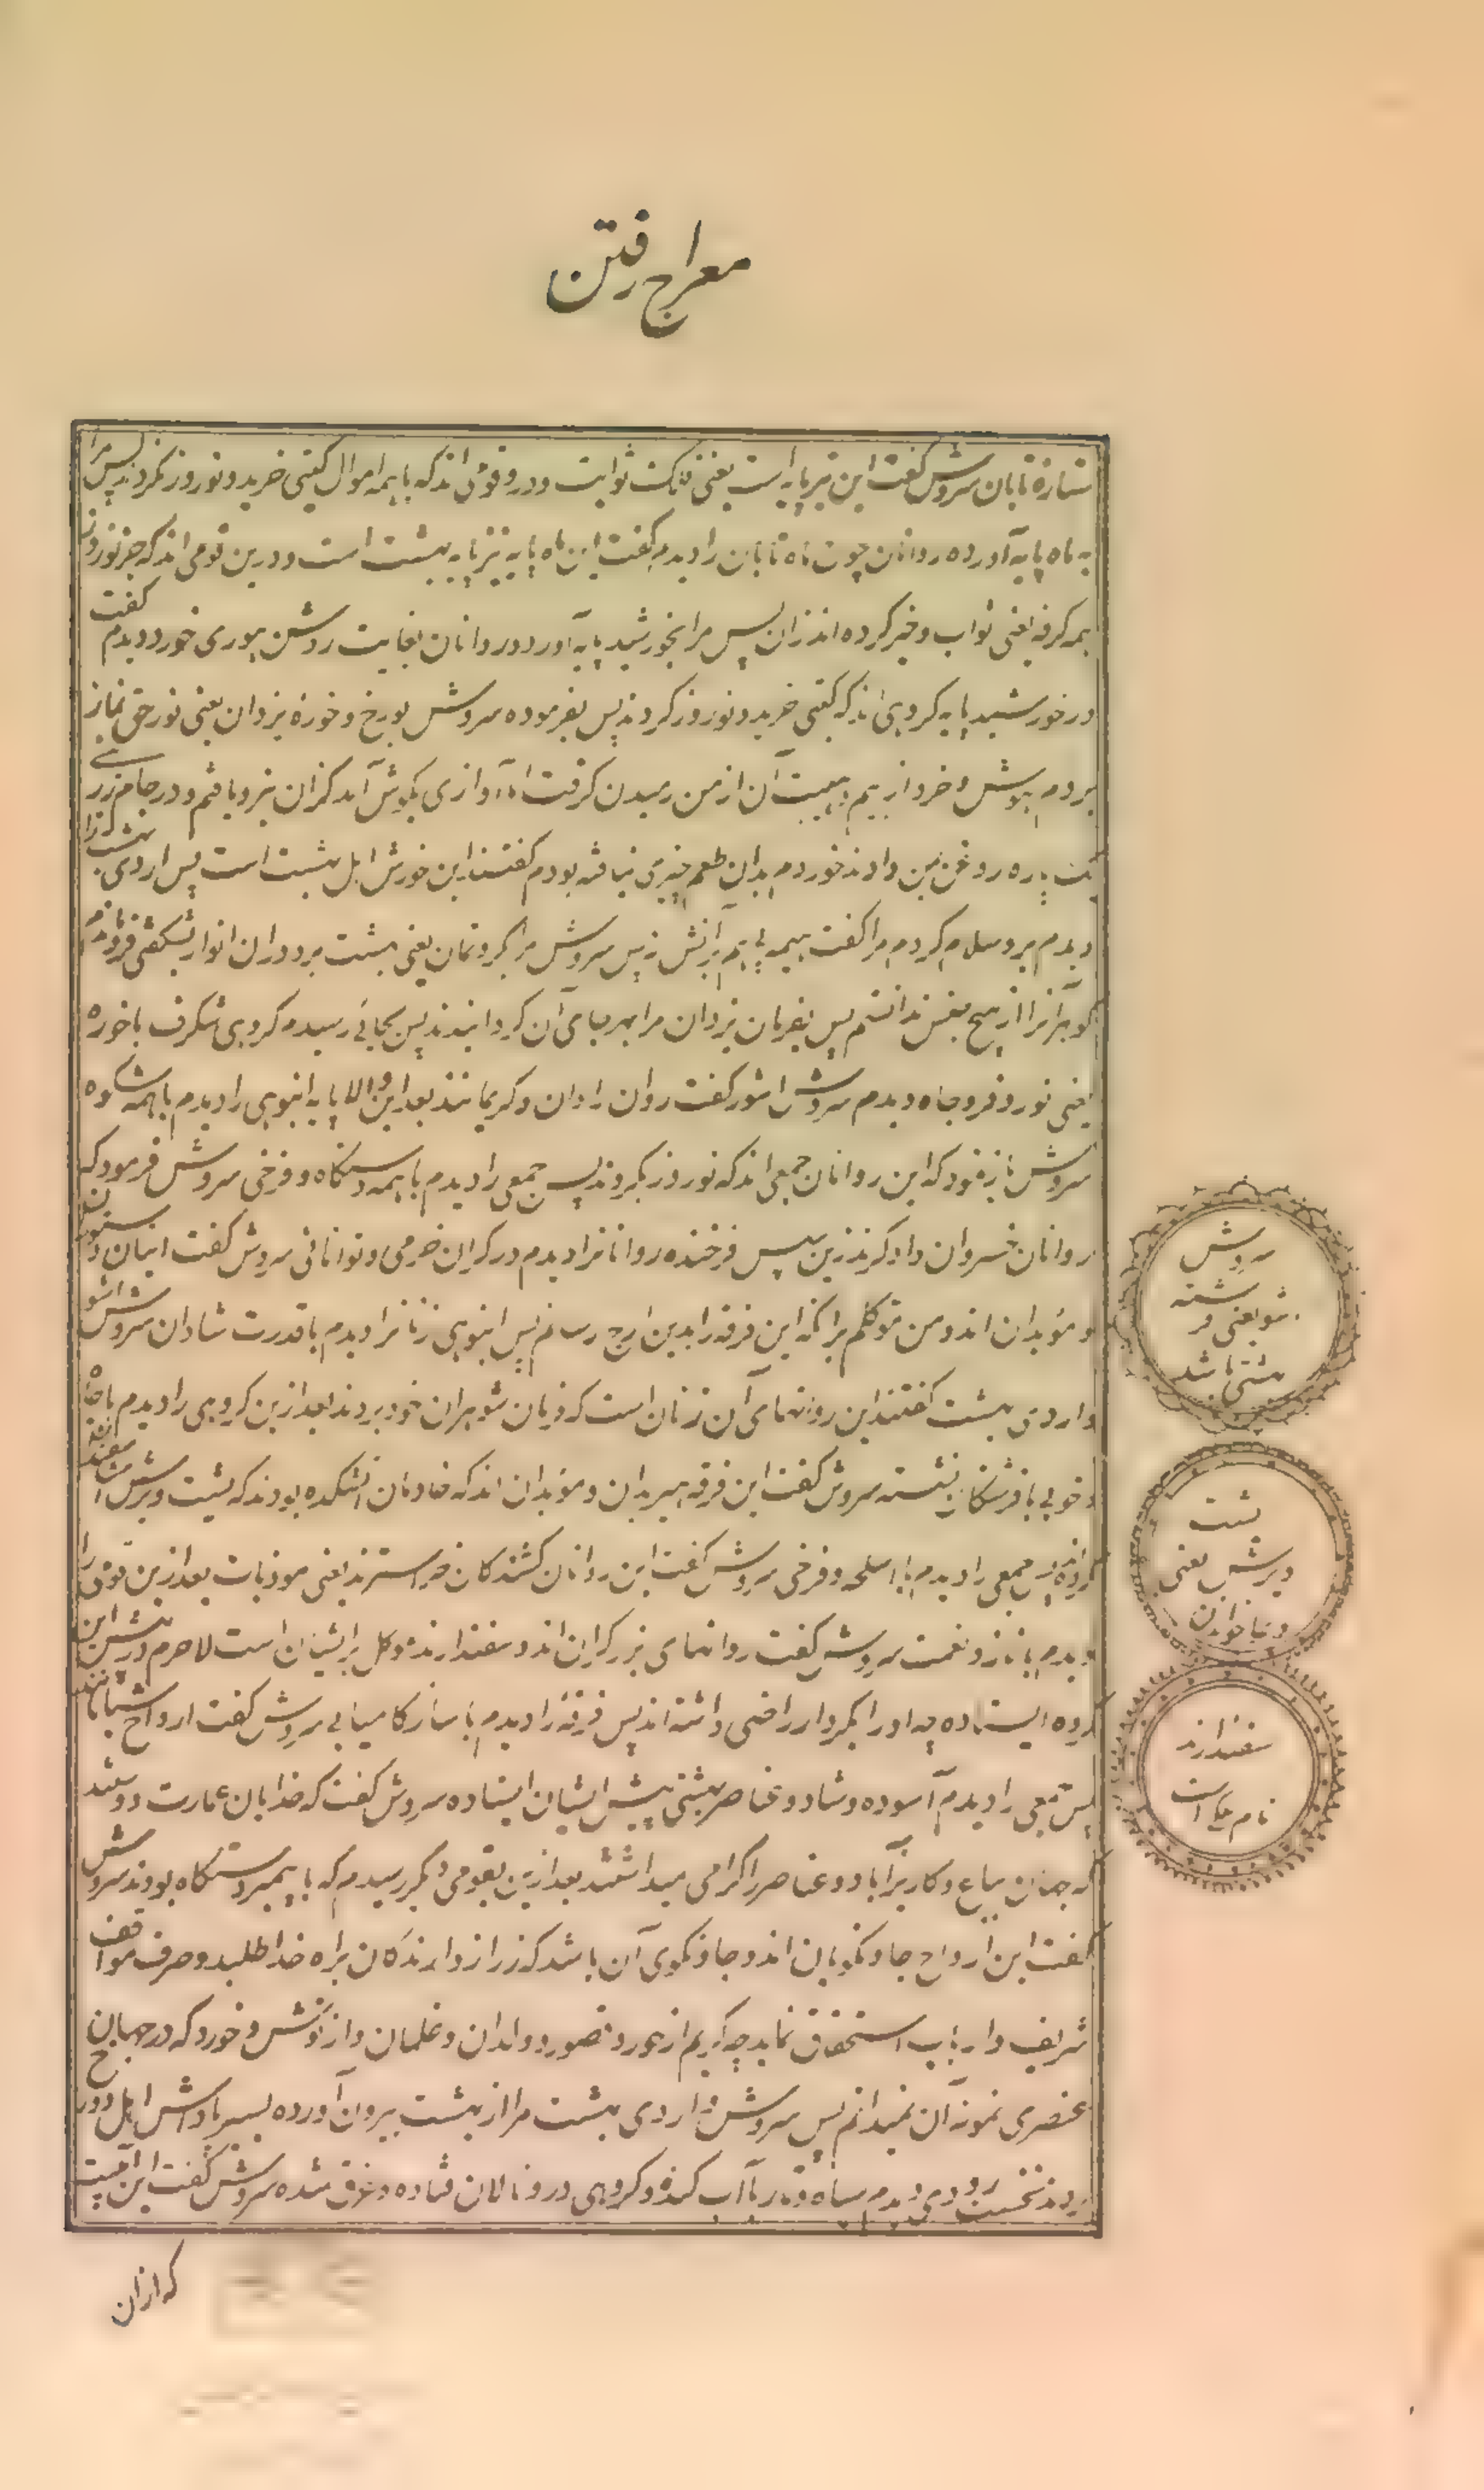 معراج رفتن
ستارهٔ تابان سروش گفت این تیر پایه است یعنی فلک ثوابت و درو قومی اند که با همه اموال گیتی خرید و نوروز نکردند پس مرا
به ماه پایه آورده روانان چون ماه تابان را دیدم گفت این ماه پایه نیز پایه بهشت است و درین قومی اند که جز نوروز
همه کرفه یعنی ثواب و خیر کرده اند زان پس مرا بخورشید پایه آورد و روانان بغایت روشن خور دیدم گفت
در خورشید پایه گروهی اند که گیتی خرید و نوروز کردند پس بفرموده سروش بورخ و خورهٔ یزدان یعنی نور حق نماز
بردم هوش و خرد از بیم و هیبت آن از من رمیدن گرفت اما آوازی بگوش آمد کزان نیرو یافتم و در جام زر
یک پاره روغن بمن دادند خوردم بدان طعم چیزی نیافته بودم گفتند این خورش اهل بهشت است پس اردی بهشت را
دیدم برو سلام کردم مرا گفت آتش نه پس سروش مرا بگروتمان یعنی بهشت برد دران انوار بشگفتی فرو ماندم
گوهر آنرا از هیچ جنس ندانستم پس بفرمان یزدان مرا بهر جای آن گردانیدند پس بجائی رسیدم گروهی شگرف با خوره
یعنی نور و فر و جاه دیدم سروش اشو گفت روان رادان و کریمانند بعد ازین والا پایه انبوهی را دیدم با همه شکوه
سروش باز نمود که این روانان جمعی اند که نوروز بکردند پس جمعی را دیدم با همه دستگاه و فرخی سروش فرمود که
روانان خسروان دادگرند زین سپس فرخنده روانانرا دیدم در کران خرمی و توانائی سروش گفت اینان دستوران
و موبدان اند و من موکلم برانکه این فرقه را بدین ارج رسانم پس انبوهی زنانرا دیدم با قدرت شادان سروش اشو
و اردی بهشت گفتند این روانهای آن زنان است که فرمان شوهران خود بردند بعد ازین گروهی را دیدم با جاه
و خوبی با فرشتگان نشسته سروش گفت این فرقه هیربدان و موبدان اند که خادمان آتشکده بودند که یشت و یزش
کرده پس جمعی را دیدم با اسلحه و فرخی سروش گفت این روانان کشندگان خرفسترند یعنی موذیات بعد ازین قومی را
دیدم با ناز و نعمت سروش گفت روانهای برزگران اند و سفندارند موکل بر ایشان است لاجرم در پیش این
گروه ایستاده چه او را بکردار راضی داشته اند پس فرقهٔ را دیدم با ساز کامیابی سروش گفت ارواح شبانانند
پس جمعی را دیدم آسوده و شاد و عناصر بهشتی پیش ایشان ایستاده سروش گفت کدخدایان عمارت دوستند
که جهان بباغ و کاریز آباد و عناصر را گرامی میداشتند بعد ازین بقومی دیگر رسیدم که با پیمبر دستگاه بودند سروش
گفت این ارواح جادنگویان اند و جادنگوی آن باشد که زر از دارندگان براه خدا طلبد و صرف مواقف
شریف و ارباب استحقاق نماید چه گویم از حور و قصور و ولدان و غلمان و از نوش و خورد که در جهان
عنصری نمونه آن نمیدانم پس سروش و اردی بهشت مرا از بهشت بیرون آورده بسیر پاداش اهل دوزخ
بردند نخست رودی دیدم سیاه و تار با آب گنده و گروهی درو نالان فتاده و غرق شده سروش گفت این آبیست
که ازان
سروش
اشو یعنی فر شته
بهشتی باشد
یشت
و یزش یعنی
دعا خواندن
سفندارند
نام ملک است